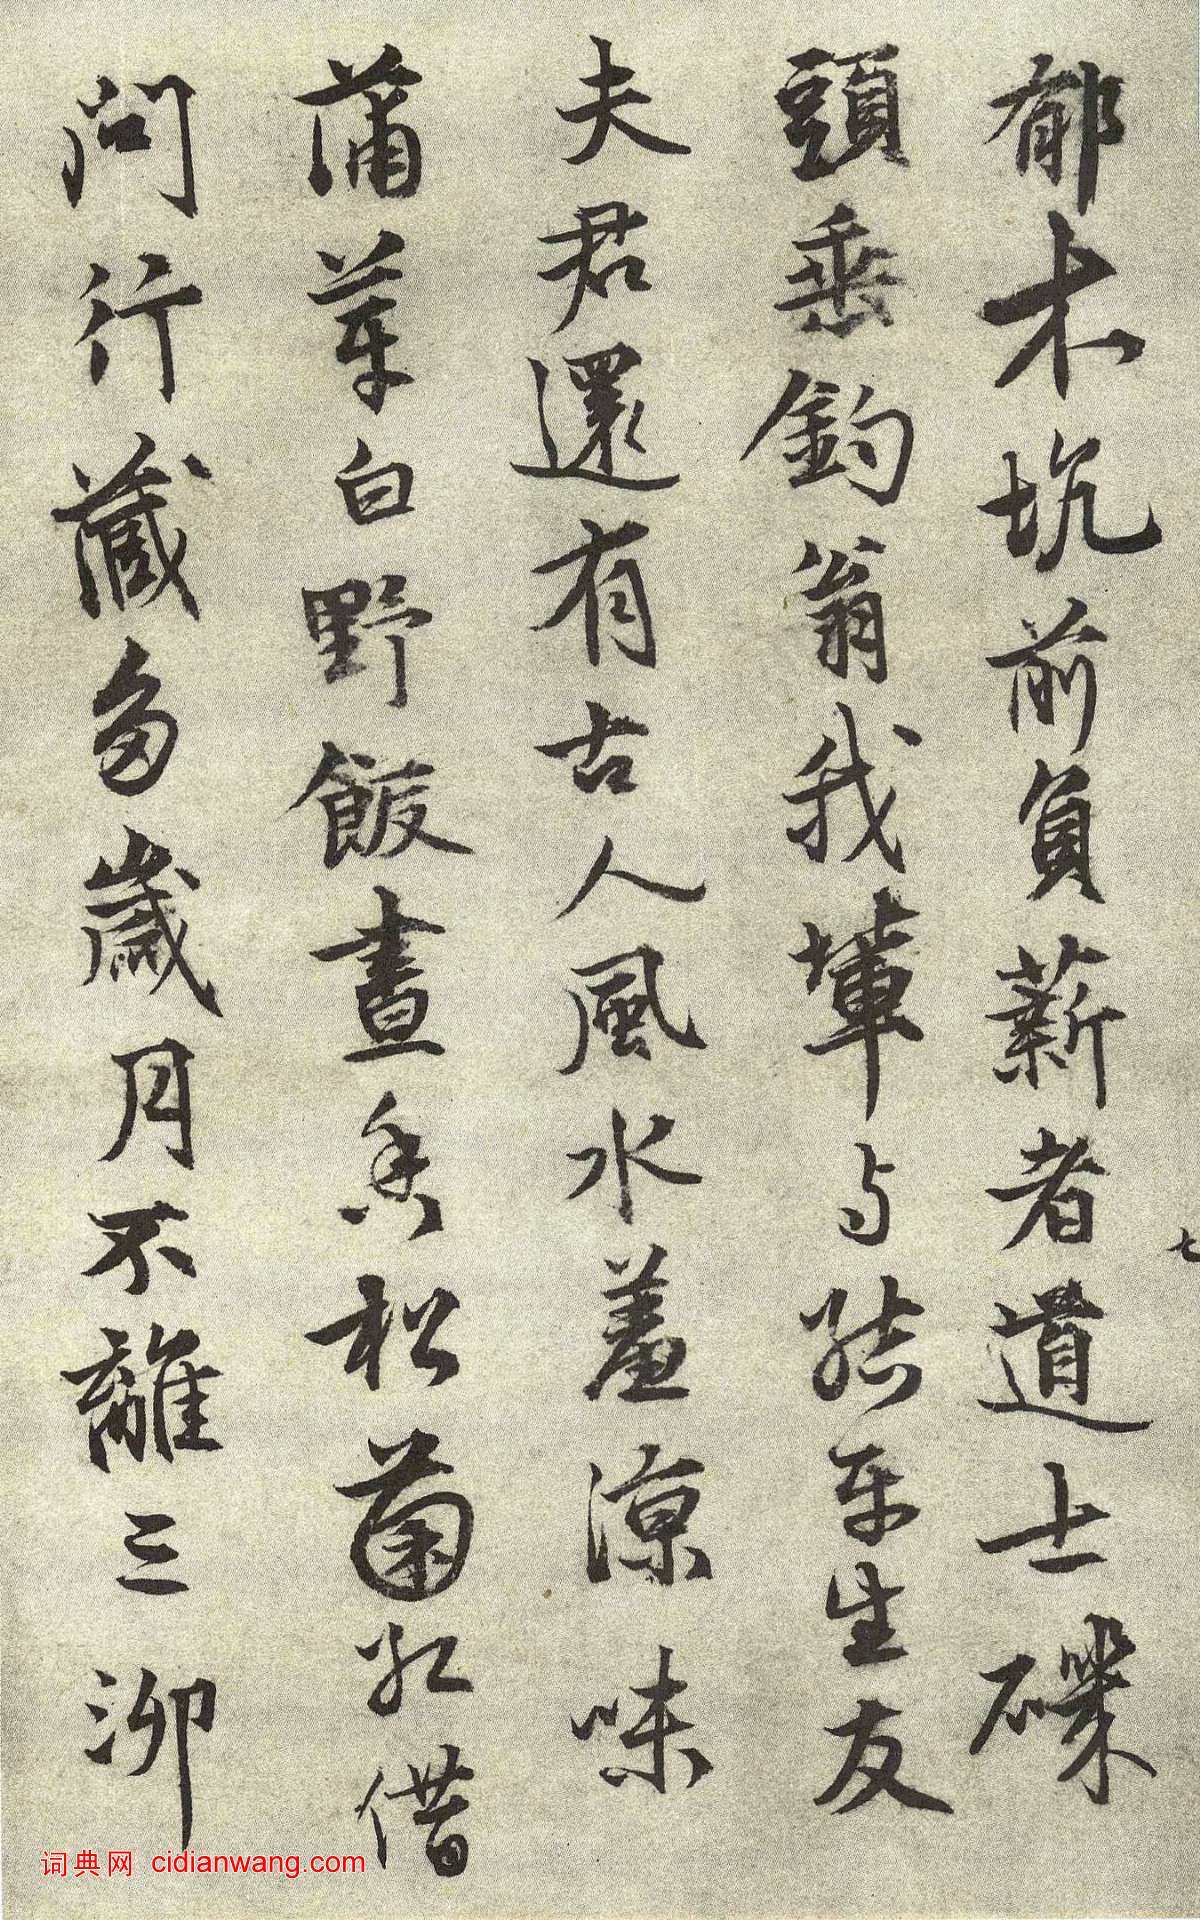 七
郁木坑前負薪者道士磯
頭垂釣翁我輩与結平生友
夫君還有古人風水羞涼味
蒲芽白野飯晝香松菌紅借
問行藏多歲月不離三泖
词典网 cidianwang.com